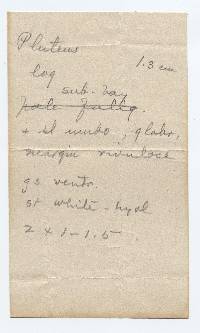 Pluteus
1.3 cm
log
sub-bay
pale fulig.
+ sl umbo, glabr,
margin rivulose
gs ventr.
st white - hyal
2 x 1-1.5